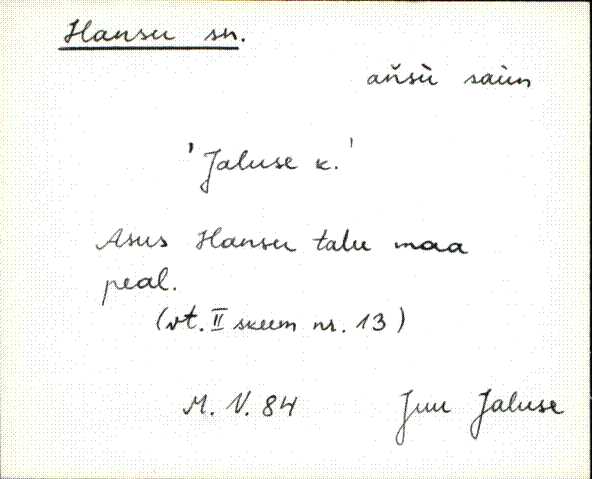 Hansu sn.
aňsù saùn
'Jaluse k.'
Asus Hansu talu maa
peal.
(vt. II skeem nr. 13)
M. V. 84 Juu Jaluse